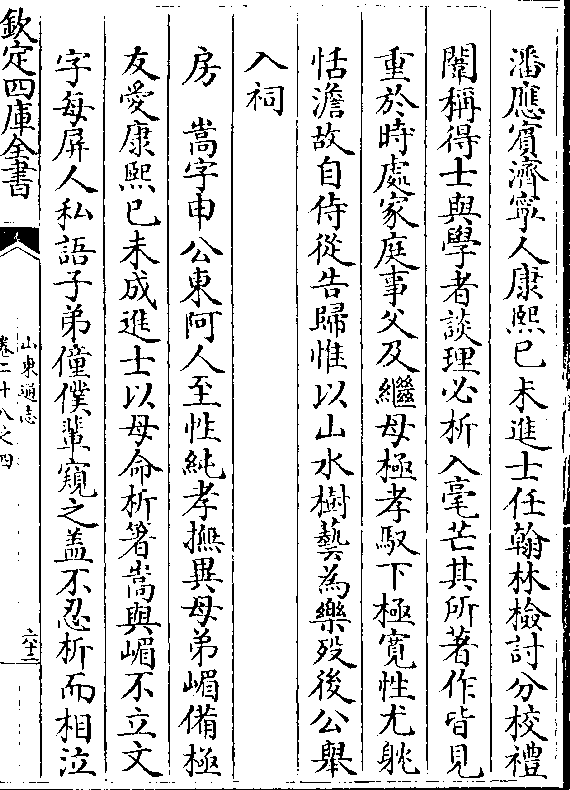 潘應賓濟寧人康熙己未進士任翰林檢討分校禮
闈稱得士與學者談理必析入毫芒其所著作皆見
重於時處家庭事父及繼母極孝馭下極寛性尤躭
恬澹故自侍從告歸惟以山水樹藝為樂歿後公舉
入祠
房　嵩字申公東阿人至性純孝撫異母弟嵋備極
友愛康熙己未成進士以母命析箸嵩與嵋不立文
字每屏人私語子弟僮僕輩窺之盖不忍析而相泣
欽定四庫全書
山東通志
卷二十八之四
六十三